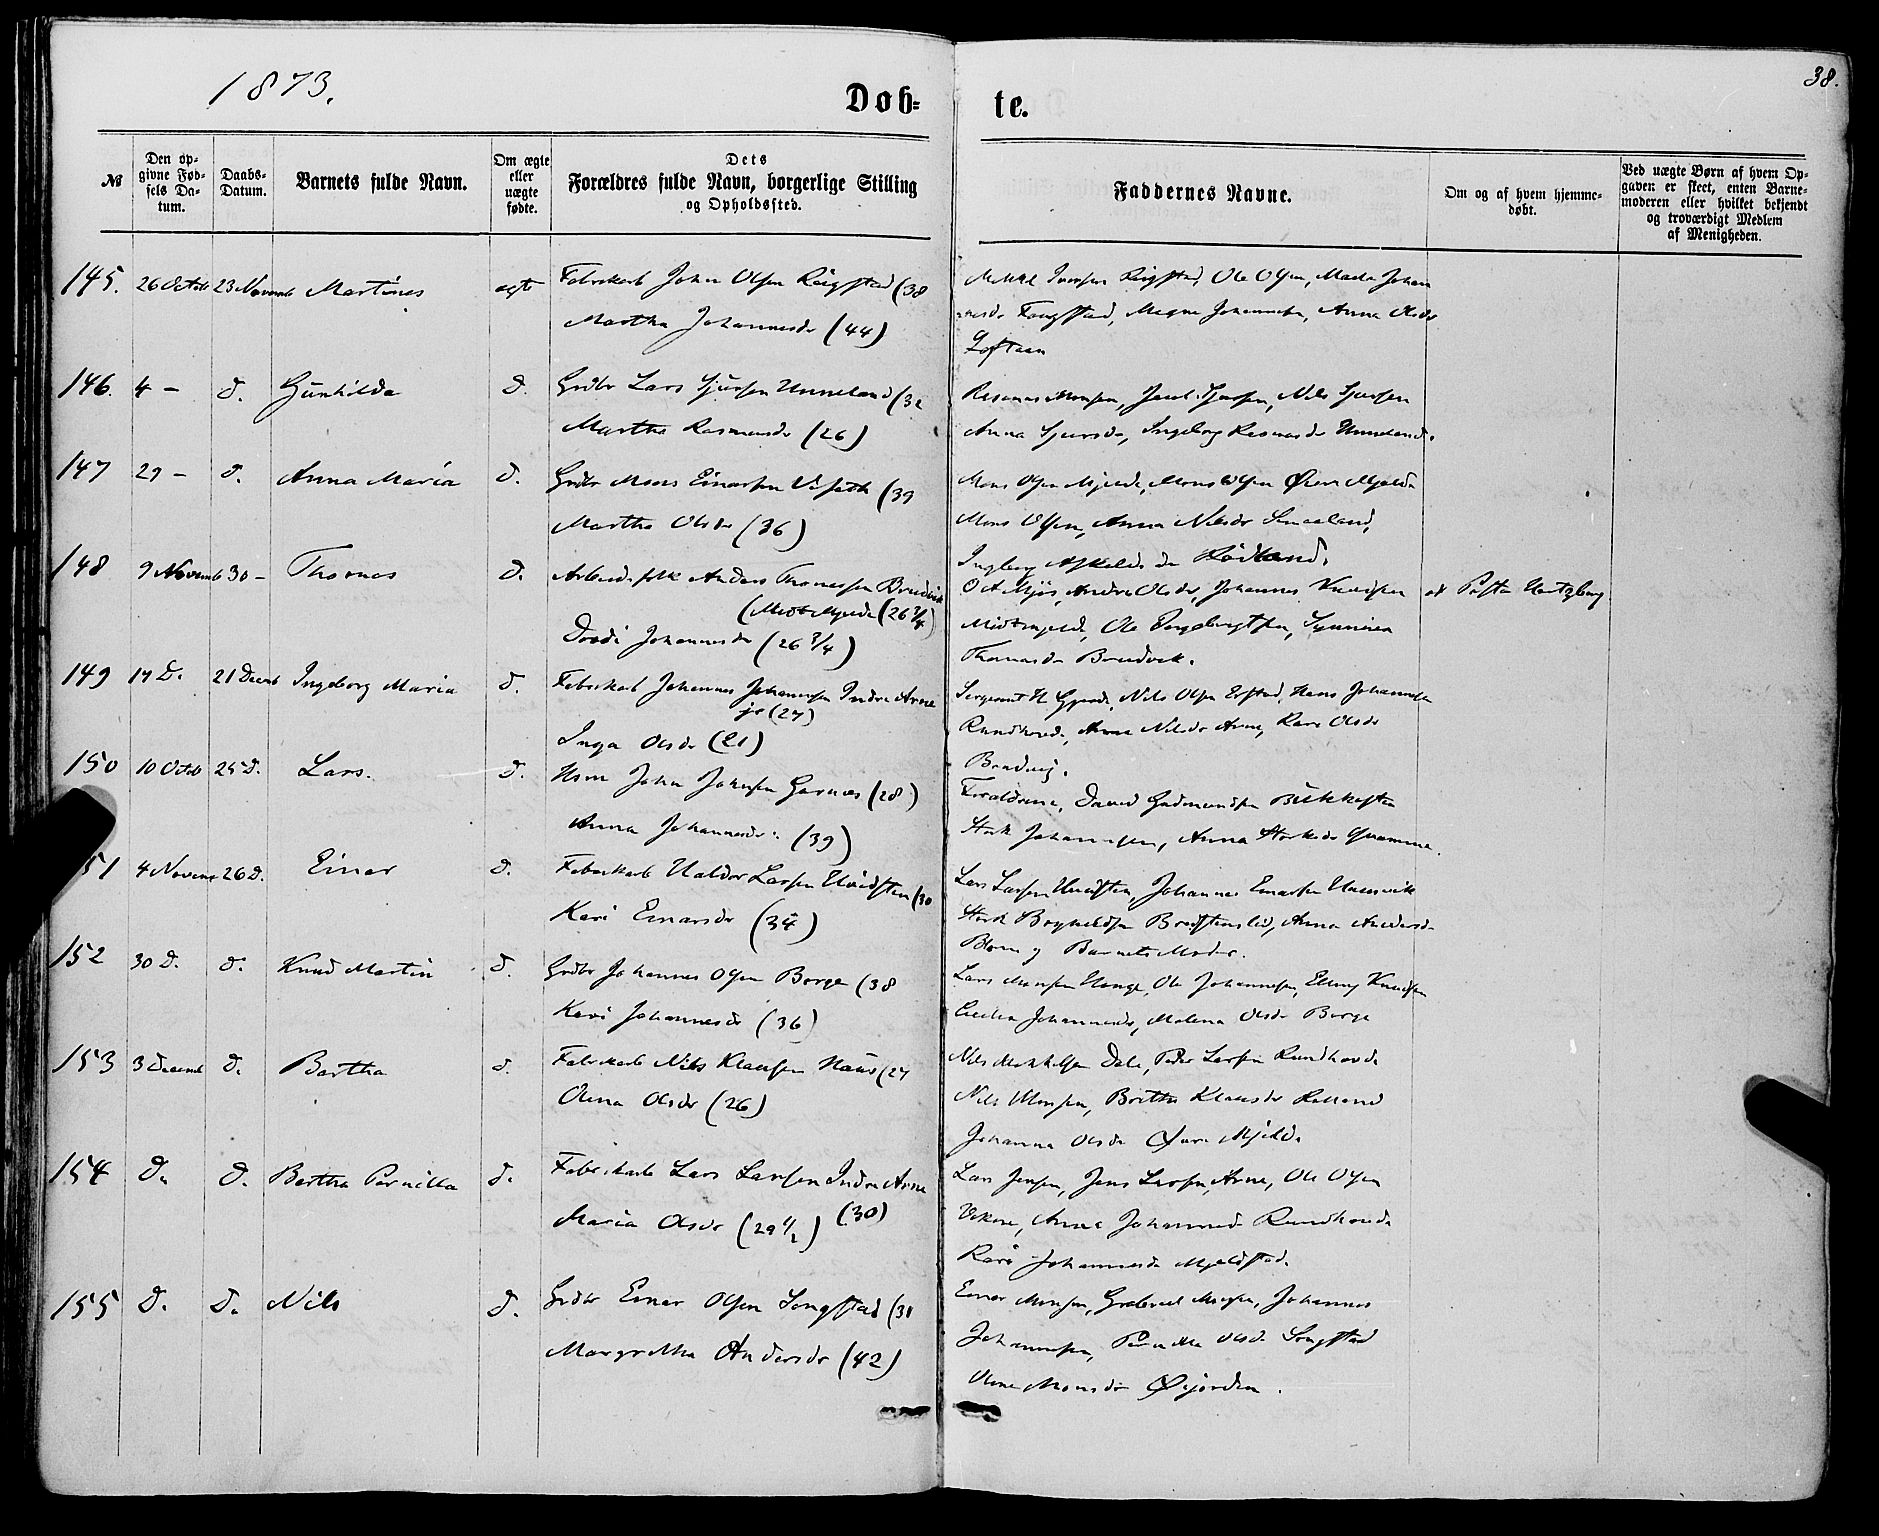 1873.
Døb-
te.
38.
№
Den op-
givne Fød-
sels Da-
tum.
Daabs-
Datum.
Barnets fulde Navn.
Om ægte
eller
uægte
fødte.
Dets
Forældres fulde Navn, borgerlige Stilling
og Opholdssted.
Faddernes Navne.
Om og af hvem hjemme-
døbt.
Ved uægte Børn af hvem Op-
gaven er skeet, enten Barne-
moderen eller hvilket bekjendt
og troværdigt Medlem
af Menigheden.
145. 26 Octob 23 Novemb Martines ægte Fabrikarb John Olsen Reigstad (38
Martha Johannesdr (44)
Mikkel Iversen Reigstad, Ole Olsen, Marta Johan
nesdr Fougstad, Magne Johannesen, Anna Olsdr
Loftaas
146. 4 - d. Gunhilda d. Grdbr Lars Sjursen Unneland (32
Martha Rasmusdr (26)
Rasmus Monsen, Jacob Sjursen, Nils Sjursen
Anna Sjursdr, Ingeborg Rasmusdr Unneland.
147 29 - d. Anna Maria d. Grdbr Mons Einarsen (39
Martha Olsdr (36)
Mons Olsen Mjelde, Mons Olsen Øvre Mjelde
Mons Olsen, Anna Nilsdr
Ingborg dr Rødland.
148 9 Novemb 30 - Thomas d. Arbeidsfolk Anders Thomassen Bruvik
(Midtmjelde (26 3/4)
Dordi Johannesdr (26 3/4)
O A Mjøs, Andrea Olsdr, Johannes Knudsen
Midtmjelde, Ole Ingebrigtsen, Synneva
Thomasdr Bruvik.
af Pastor Hertzberg
149 14 D. 21 Decemb Ingeborg Maria d. Fabrikarb Johannes Johannesen Indre Arne
jr (27)
Inga Olsdr (21)
Sergeant H Gjerde, Nils Olsen Erstad, Hans Johannesen
Rundhovde, Anna Nilsdr Arne, Kari Olsdr
Bruvig.
150 10 Octob 25 D. Lars. d. Husm John Johnsen Garnæs (28)
Anna Johannesdr. (39)
Forældrene, David Gudmundsen
Johannesen, Anna Kvamme.
151 4 Novem 26 D. Einar d. Fabrikarb Haldor Larsen Hvidsten (30
Kari Einarsdr (34)
Lars Larsen Hvidsten, Johannes Einarsen
Brynildsen, Anna Andersdr
og Barnets Moder.
152 30 D. d. Knud Martin d. Grdbr Johannes Olsen Borge (38
Kari Johannesdr (36)
Lars Monsen Hauge, Ole Johannesen, Elling Knudsen
Cecilia Johannesdr, Malena Olsdr Borge
153 3 Decemb d. Bertha d. Fabrikarb Nils Klausen Haus (27
Olena Olsdr (26)
Nils Mikkelsen Dale, Peder Larsen Rundhovde
Nils Monsen, Brithe Klausdr
Johanna Olsdr Øvre Mjelde
154 D. D. Bertha Pernilla d. Fabrikarb Lars Larsen Indre Arne
(30)
Maria Olsdr (29 1/2)
Lars Jensen, Jens Larsen, Arne, Ole Olsen
Anna Johannesdr Rundhovde
Kari Johannesdr Mjeldstad.
155 D. D. Nils d. Grdbr Einar Olsen Songstad (38
Margretha Andersdr (42)
Einar Monsen, Gabriel Magnesen, Johannes
Johannesen, Pernilla Olsdr Songstad
Olena Monsdr Øijorden.